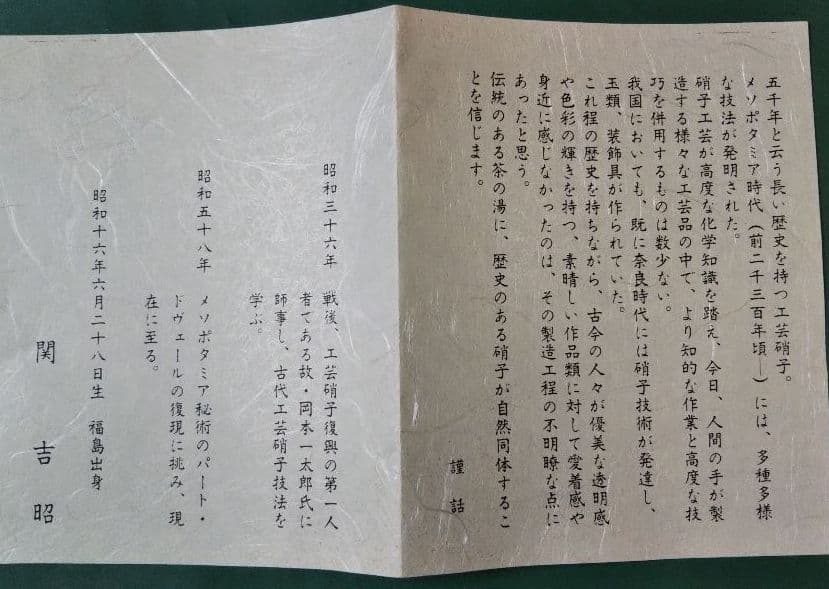 五千年と云う長い歴史を持つ工芸硝子。
メソポタミア時代(前二千三百年頃―)には、多種多様
な技法が発明された。
硝子工芸が高度な化学知識を踏え、今日、人間の手が製
造する様々な工芸品の中で、より知的な作業と高度な技
巧を併用するものは数少ない。
我国においても、既に奈良時代には硝子技術が発達し、
玉類、装飾具が作られていた。
これ程の歴史を持ちながら、古今の人々が優美な透明感
や色彩の輝きを持つ、素晴しい作品類に対して愛着感や
身近に感じなかったのは、その製造工程の不明瞭な点に
あったと思う。
伝統のある茶の湯に、歴史のある硝子が自然同体するこ
とを信じます。
謹話
昭和三十六年 戦後、工芸硝子復興の第一人
者である故・岡本一太郎氏に
師事し、古代工芸硝子技法を
学ぶ。
昭和五十八年 メソポタミア秘術のパート・
ドヴェールの復現に挑み、現
在に至る。
昭和十六年六月二十八日生 福島出身
関吉昭